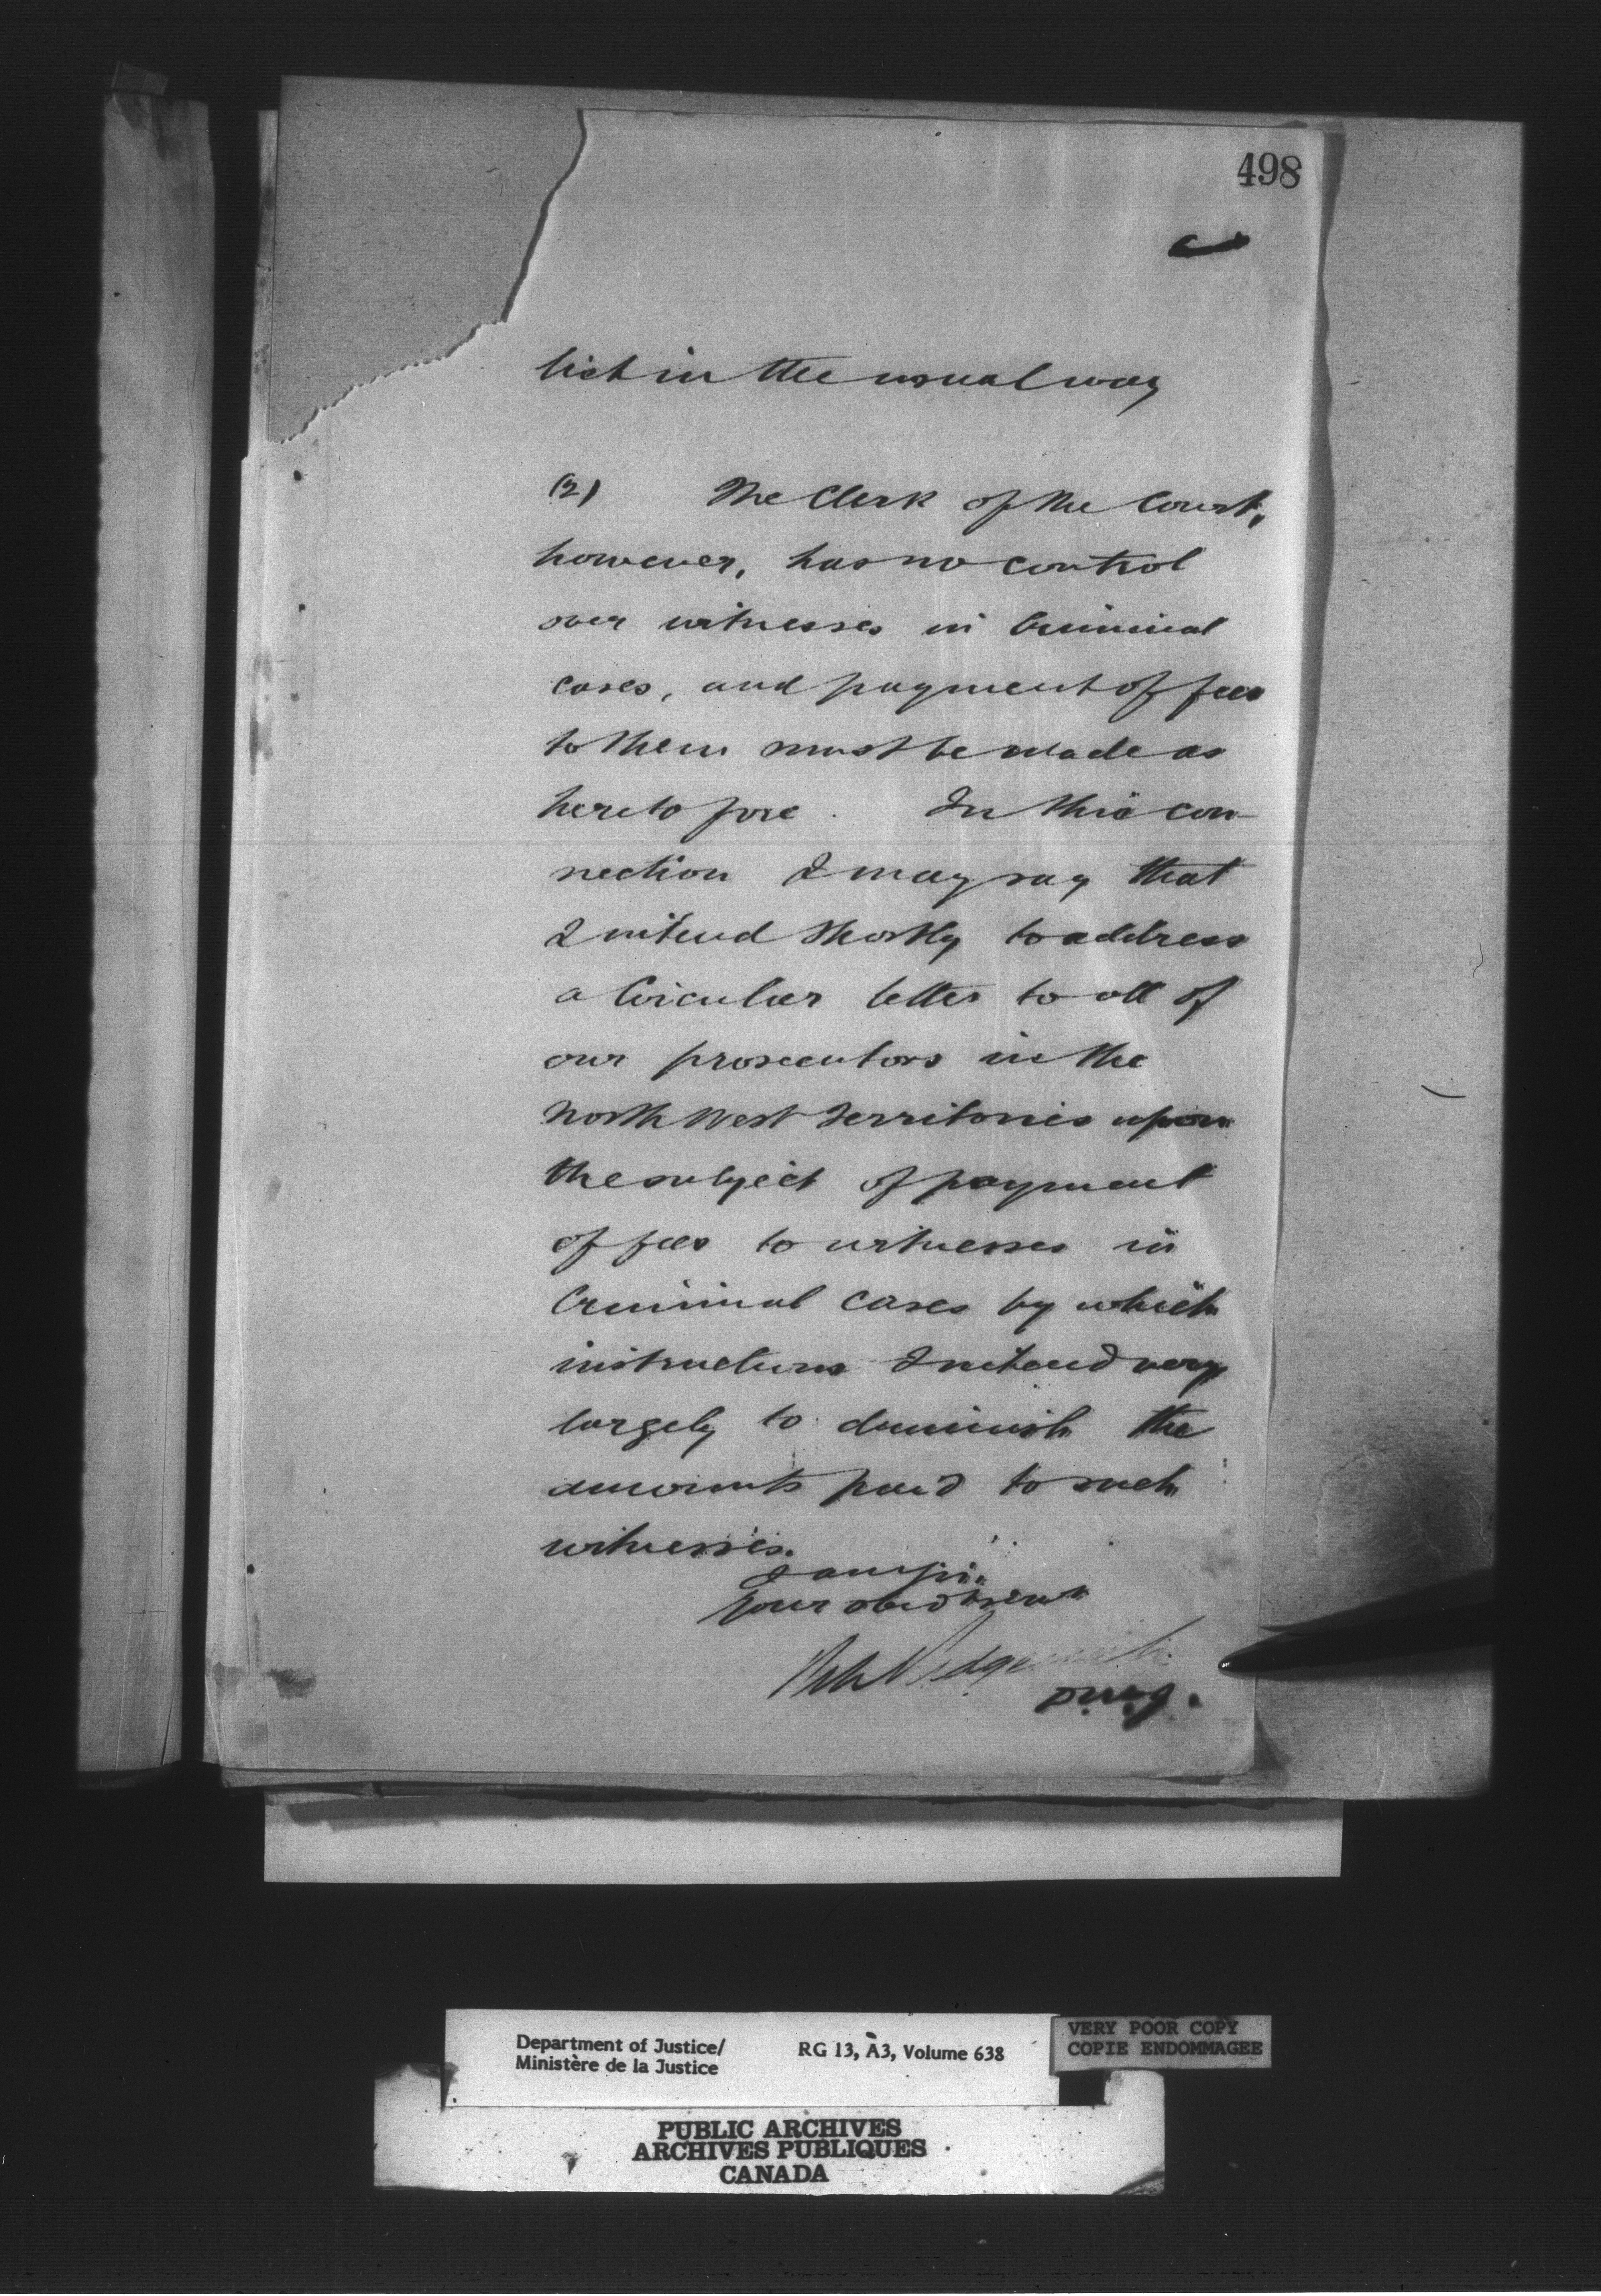 498
list in the usual way
(2) The Clerk of the Court,
however, has no control
over witnesses in Criminal
cases, and payment of fees
to them must be made as
heretofore. In this con-
nection I may say that
I intend shortly to address
a Circular letter to all of
our prosecutors in the
North West Territories upon
the subject of payment
of fees to witnesses in
Criminal cases by which
instructions I intend very
largely to diminish the
amounts paid to such
witnesses.
I am Sir
Your obed servt
Sedgewick
D.M.J.
Department of Justice/
Ministère de la Justice
RG 13, A3, Volume 638
VERY POOR COPY
COPIE ENDOMMAGEE
PUBLIC ARCHIVES
ARCHIVES PUBLIQUES
CANADA